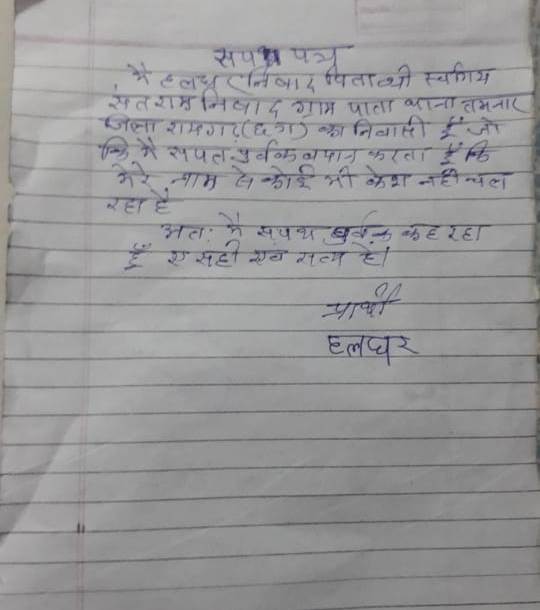 सपथ पत्र
मै हलधर निषाद पिता श्री स्वर्गिय
संतराम निषाद ग्राम पाता थाना तमनार
जिला रायगढ़ (छ.ग) का निवासी हूँ जो
कि मै सपत पुर्वक बयान करता हूँ कि
मेरे नाम से कोई भी केश नही चल
रहा है
अतः मै सपथ पुर्वक कह रहा
हूँ ए सही एवं सत्य है।
प्रार्थी
हलधर